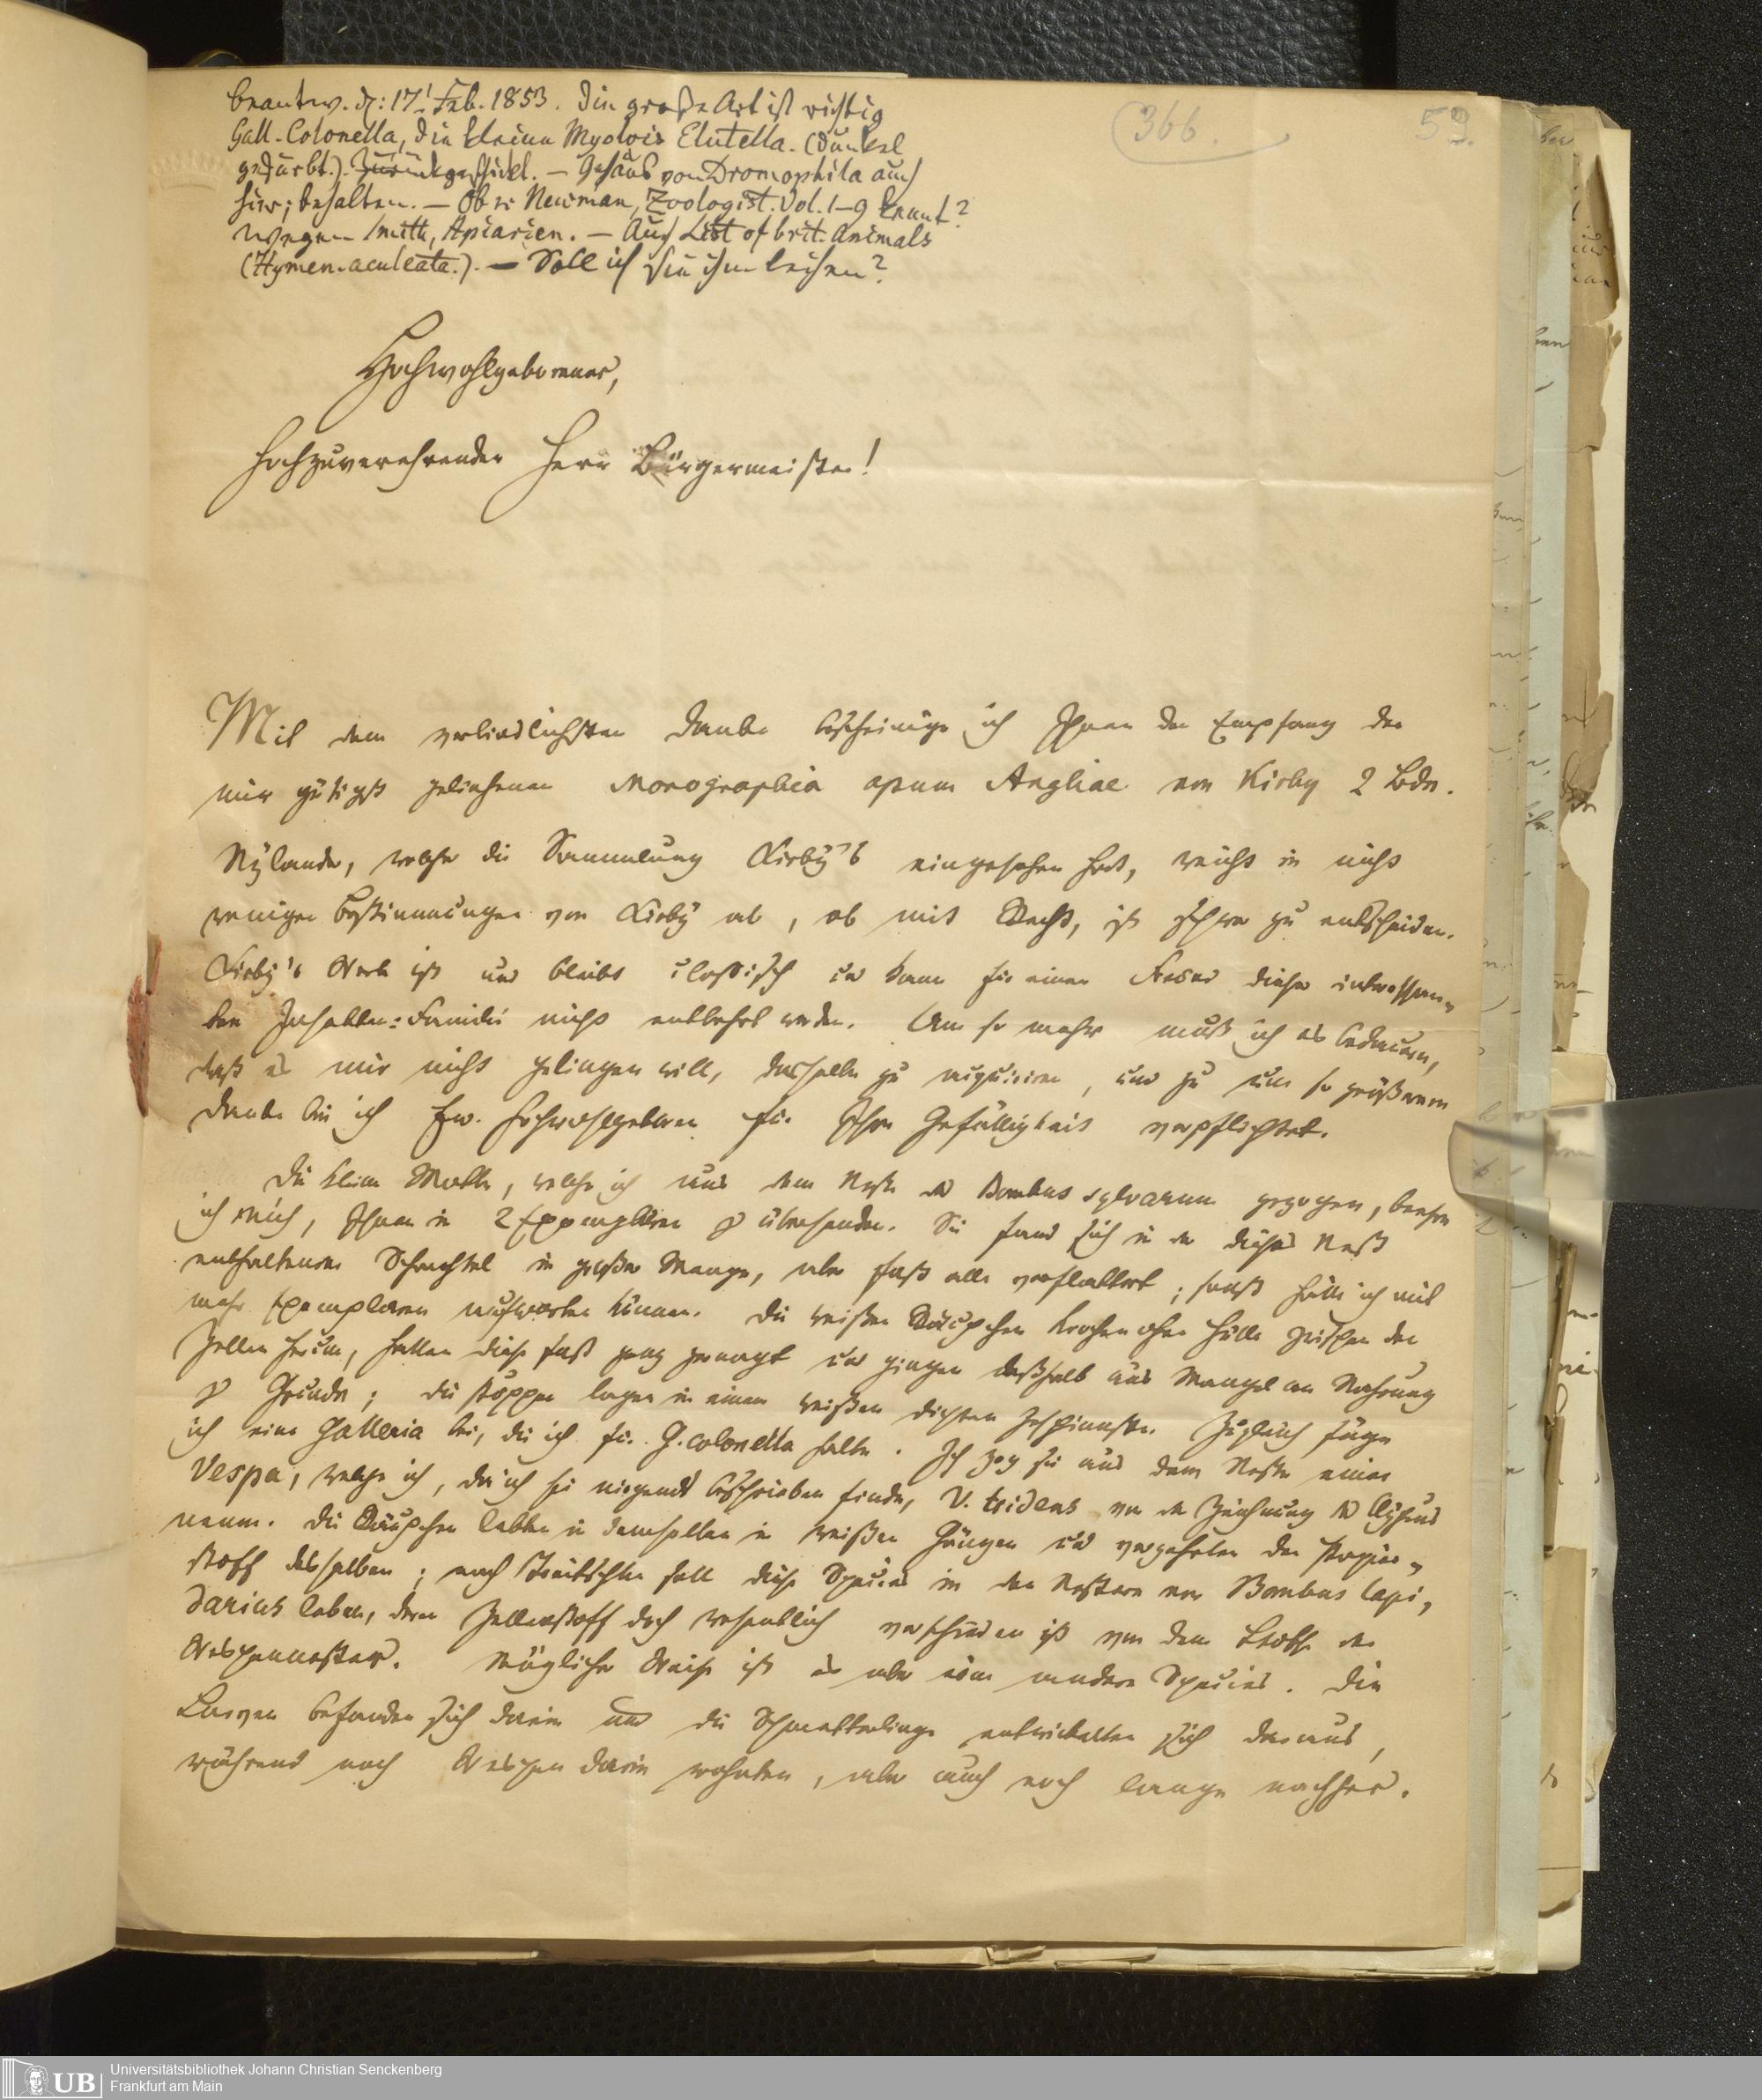 beantw. d: 17! Feb. 1853. Die große Art ist richtig
Gall. Colonella, die kleine Myelois Elutella. (dunkel
gefärbt.). Zurückgeschickt. — Gehäus von Dromophila auch
hier; behalten. — Ob er Newman, Zoologist. Vol. 1–9 kennt?
wegen Smith, Apiarien. — Auch List of brit. Animals
(Hymen. aculeata.). — Soll ich sie ihm leihen?
366.
59.
Hochwohlgeborener,
Hochzuverehrender Herr Bürgermeister!
Mit dem verbindlichsten Danke bescheinige ich Ihnen den Empfang der
mir gütigst geliehenen Monographia apum Angliae von Kirby 2 Bde.
Nylander, welcher die Sammlung Kirby's eingesehen hat, weicht in nicht
wenigen Bestimmungen von Kirby ab, ob mit Recht, ist schwer zu entscheiden.
Kirby's Werk ist und bleibt classisch und kann für einen Freund dieser interessan-
ten Insekten-Familie nicht entbehrt werden. Um so mehr muß ich es bedauern,
daß es mir nicht gelingen will, dasselbe zu acquiriren, und zu um so größerem
Danke bin ich Ew. Hochwohlgeboren für Ihre Gefälligkeit verpflichtet.
Die kleine Motte, welche ich aus dem Neste des Bombus sylvarum gezogen, beehre
ich mich, Ihnen in 2 Exemplaren zu übersenden. Sie fand sich in der dieses Nest
enthaltenen Schachtel in großer Menge, aber fast alle verflattert; sonst hätte ich mit
mehr Exemplaren aufwarten können. Die weißen Räupchen krochen ohne Hülle zwischen den
Zellen herum, hatten diese fast ganz zernagt und gingen deßhalb aus Mangel an Nahrung
zu Grunde; die Puppen lagen in einem weißen dichten Gespinnste. Zugleich füge
ich eine Galleria bei, die ich für G. colonella halte. Ich zog sie aus dem Neste einer
Vespa, welche ich, da ich sie nirgends beschrieben finde, V. tridens von der Zeichnung des Clypeus
nenne. Die Räupchen lebten in demselben in weißen Gängen und verzehrten den Papier-
stoff desselben; nach Treitschke soll diese Species in den Nestern von Bombus lapi-
darius leben, deren Zellenstoff doch wesentlich verschieden ist von dem Stoffe der
Wespennester. Möglicher Weise ist es aber eine andere Species. Die
Larven befanden sich darin und die Schmetterlinge entwickelten sich daraus,
während noch Wespen darin wohnten, aber auch noch lange nachher.
UB
Universitätsbibliothek Johann Christian Senckenberg
Frankfurt am Main